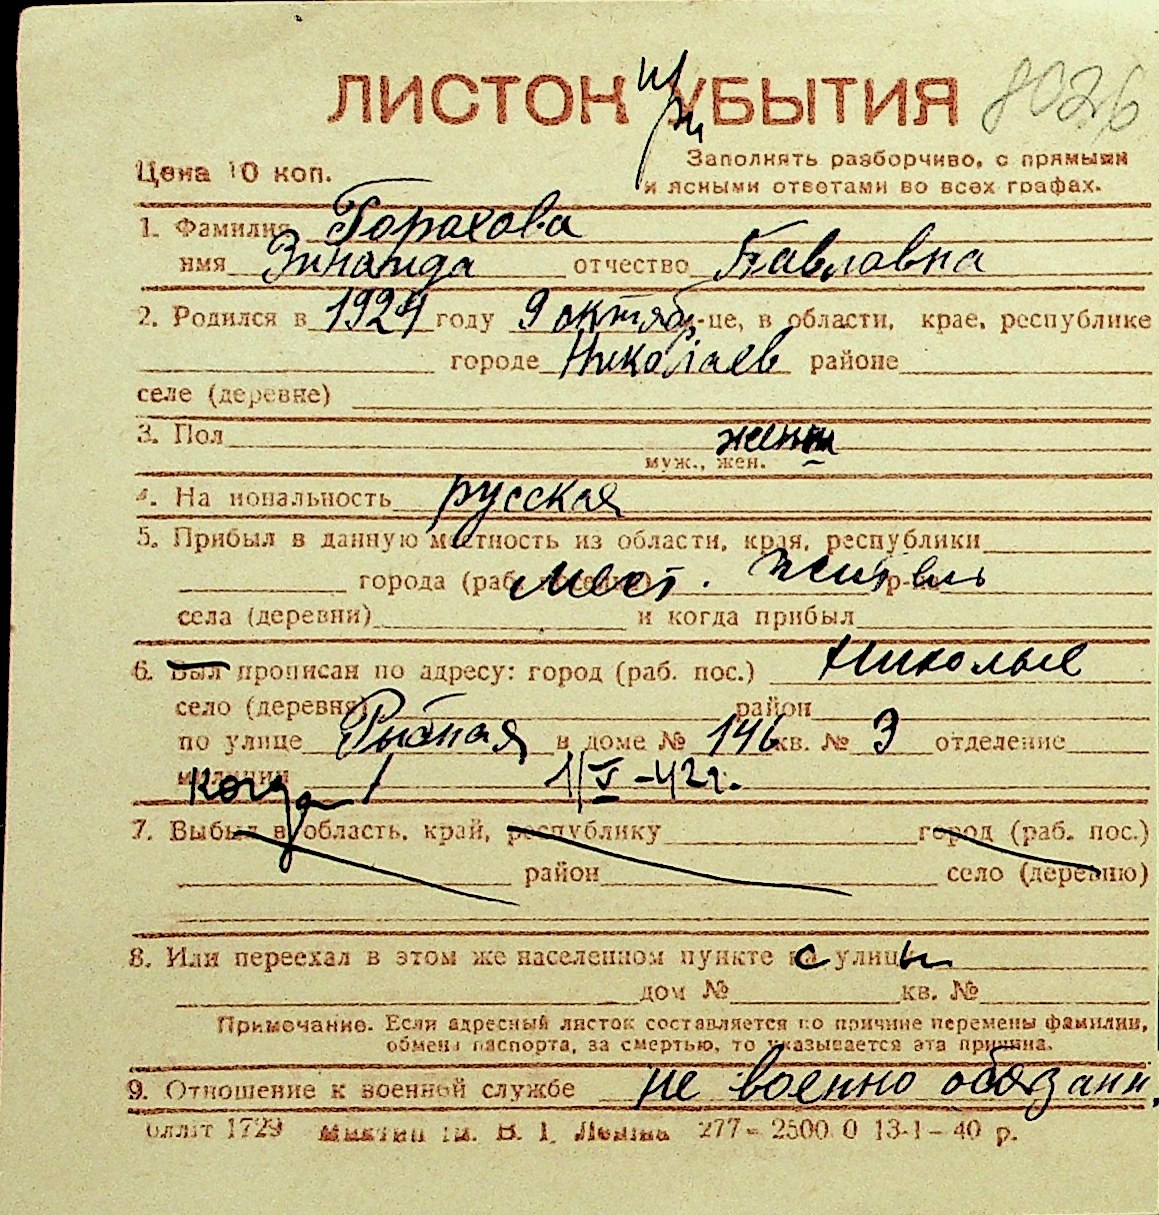 ЛИСТОК УБЫТИЯ
при
8026
Цена 10 коп.
Заполнять разборчиво, с прямыми
и ясными ответами во всех графах.
1. Фамилия Горохова
имя Зинаида отчество Павловна
2. Родился в 1924 году 9 октябр-це, в области, крае, республике
городе Николаев районе
селе (деревне)
3. Пол женск
муж., жен.
4. Национальность русская
5. Прибыл в данную местность из области, края, республики
города (раб. поселка) мест. житель р-на
села (деревни) и когда прибыл
6. Был прописан по адресу: город (раб. пос.) Николаев
село (деревня) район
по улице Рыбная в доме № 146 кв. № 3 отделение
милиции когда 1/V-42г.
7. Выбыл в область, край, республику город (раб. пос.)
район село (деревню)
8. Или переехал в этом же населенном пункте с улицы
дом № кв. №
Примечание. Если адресный листок составляется по причине перемены фамилии,
обмена паспорта, за смертью, то указывается эта причина.
9. Отношение к военной службе не военно обязанн.
1729 В. И. Ленина 277-2500 0 13-1-40 р.